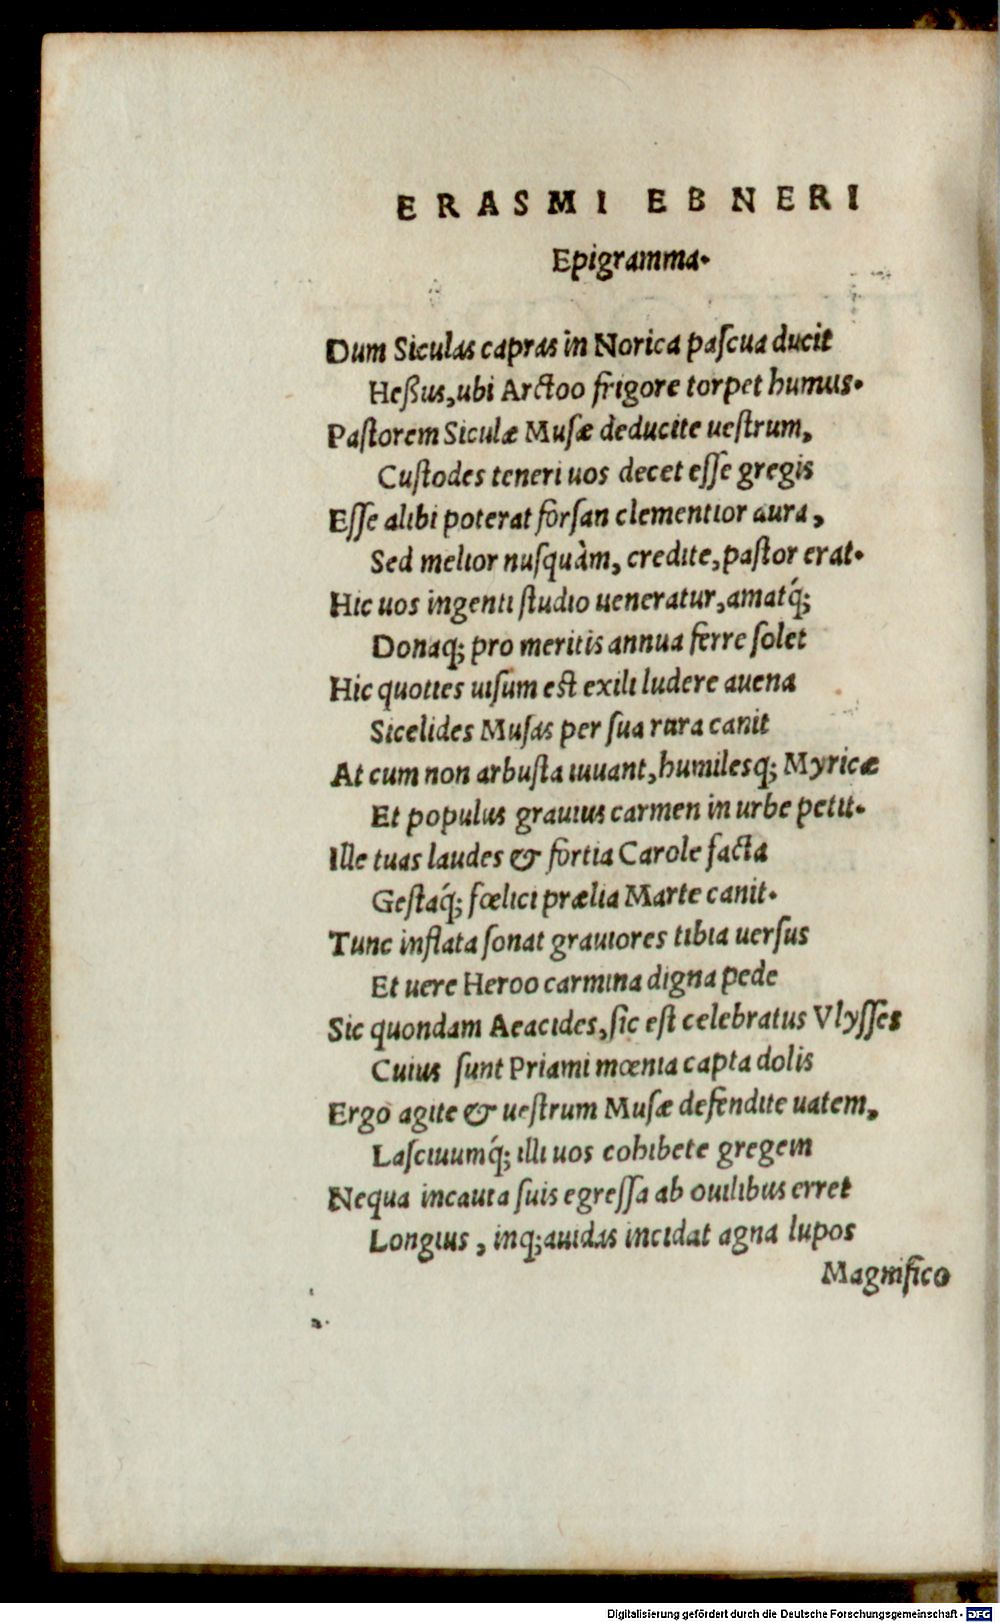 ERASMI EBNERI
Epigramma.
Dum Siculas capras in Norica paſcua ducit
Heßus, ubi Arctoo frigore torpet humus.
Paſtorem Siculæ Muſæ deducite ueſtrum,
Cuſtodes teneri uos decet eſſe gregis
Eſſe alibi poterat forſan clementior aura,
Sed melior nuſquàm, credite, paſtor erat.
Hic uos ingenti ſtudio ueneratur, amatq́;
Donaq; pro meritis annua ferre ſolet
Hic quoties uiſum eſt exili ludere auena
Sicelides Muſas per ſua rura canit
At cum non arbuſta iuuant, humilesq; Myricæ
Et populus grauius carmen in urbe petit.
Ille tuas laudes & fortia Carole facta
Geſtaq́; fœlici prælia Marte canit.
Tunc inflata ſonat grauiores tibia uerſus
Et uere Heroo carmina digna pede
Sic quondam Aeacides, ſic eſt celebratus Vlyſſes
Cuius ſunt Priami mœnia capta dolis
Ergo agite & ueſtrum Muſæ defendite uatem,
Laſciuumq́; illi uos cohibete gregem
Nequa incauta ſuis egreſſa ab ouilibus erret
Longius, inq; auidas incidat agna lupos
Magnifico
Digitalisierung gefördert durch die Deutsche Forschungsgemeinschaft - DFG